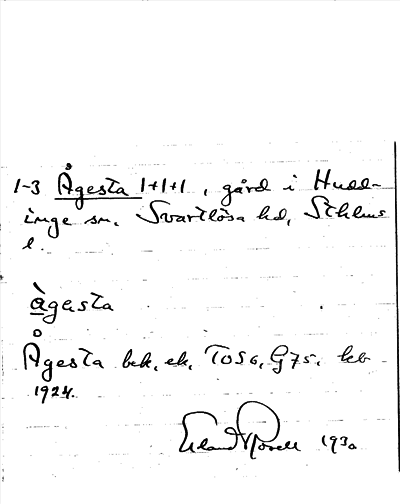 1-3 Ågesta 1+1+1, gård i Hudd-
inge sn. Svartlösa hd, Sthlms
l.
àgesta
Ågesta bek. ek. T056, G75. kb
1924.
Erland Rosell 1930